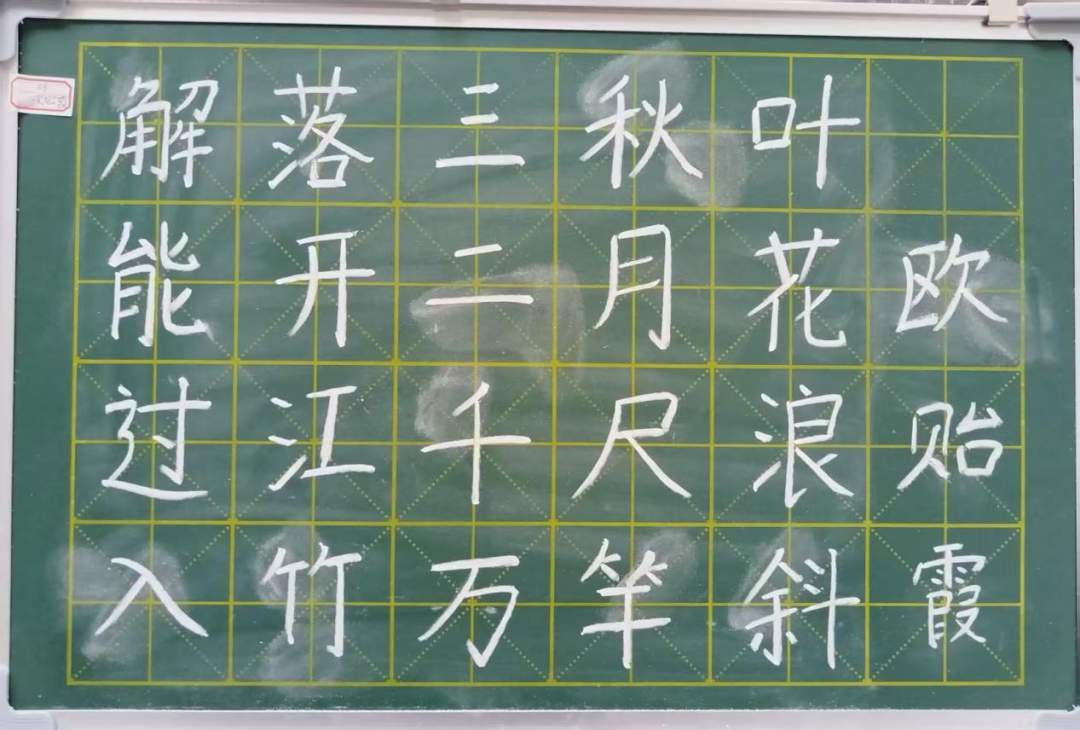 解落三秋叶
能开二月花
过江千尺浪
入竹万竿斜
欧贻霞